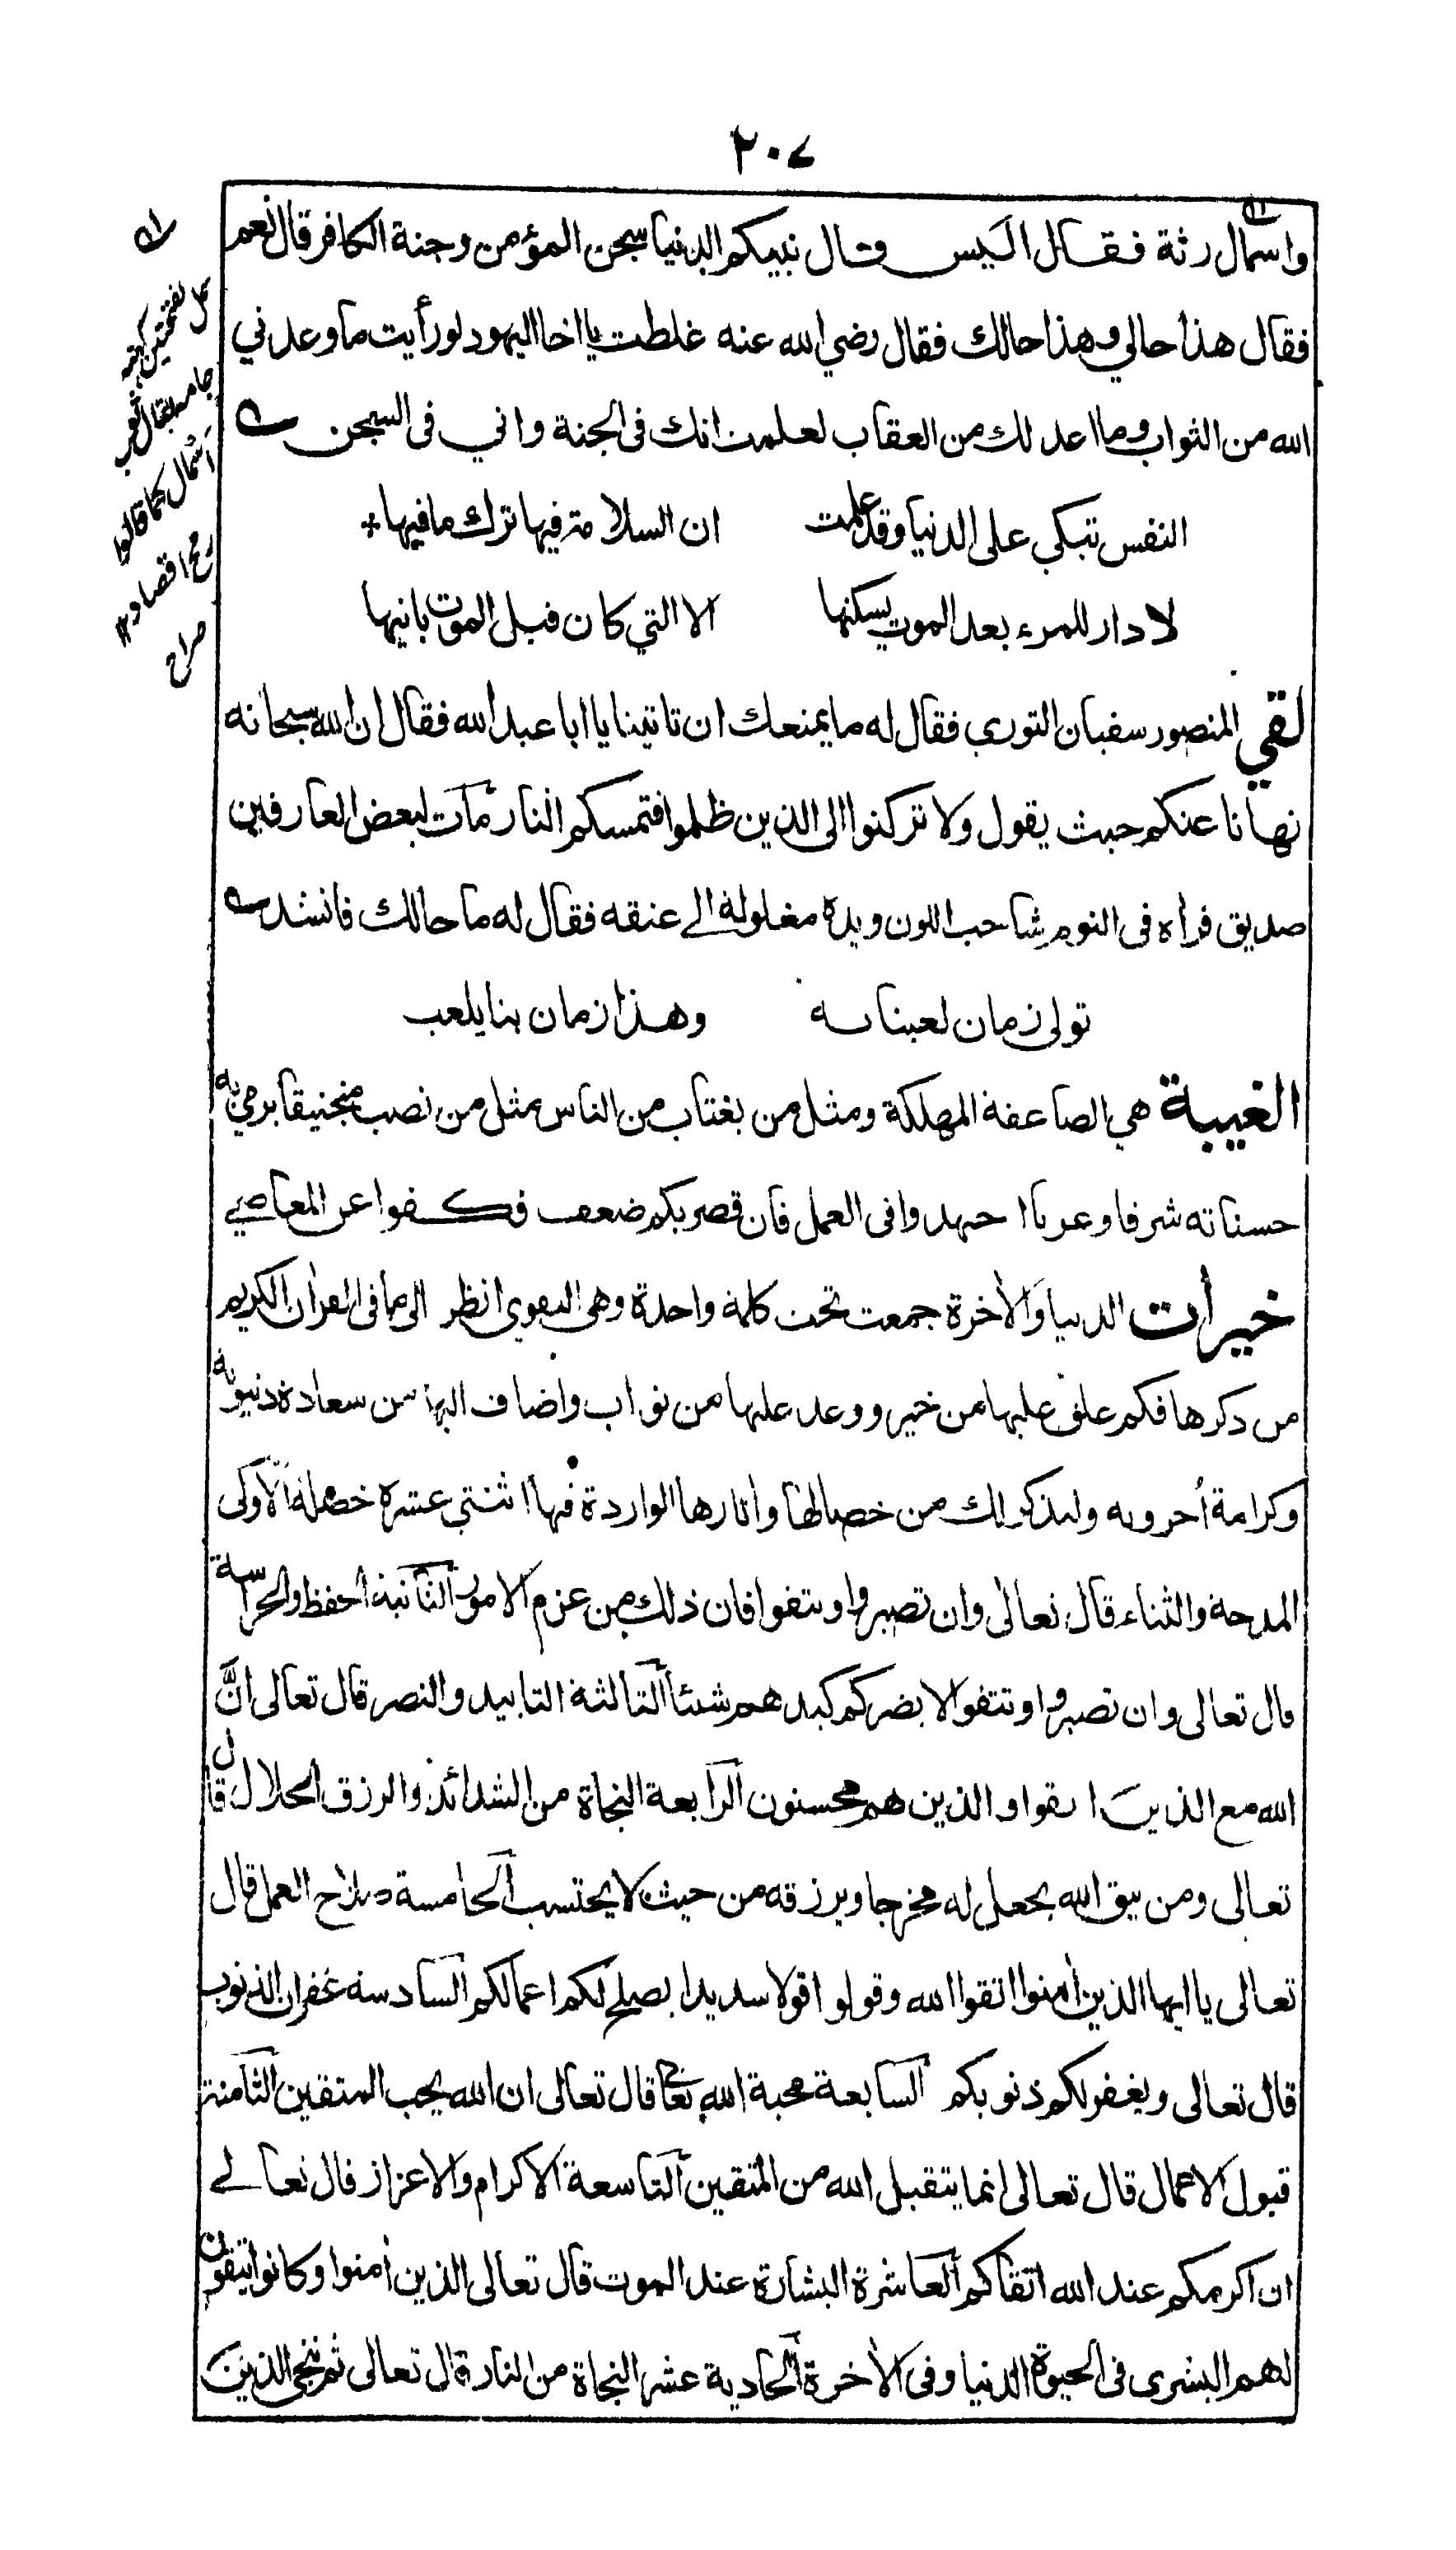 ٢٠٧
واسمال رثة فقال اليس قال نبيكم الدنيا سجن المؤمن وجنة الكافر قال نعم
فقال هذا حالي وهذا حالك فقال رضي الله عنه غلطت يا اخا اليهود لو رأيت ما وعدني
الله من الثواب وما اعد لك من العقاب لعلمت انك فى الجنة واني فى السجن
النفس تبكي على الدنيا وقد علمت ان السلامة فيها ترك ما فيها
لا دار للمرء بعد الموت يسكنها الا التي كان قبل الموت بانيها
لقي المنصور سفيان الثوري فقال له ما يمنعك ان تاتينا يا ابا عبد الله فقال ان الله سبحانه
نهانا عنكم حيث يقول ولا تركنوا الى الذين ظلموا فتمسكم النار مات لبعض العارفين
صديق فرأه فى النوم شاحب اللون ويده مغلولة الے عنقه فقال له ما حالك فانشد
تولى زمان لعبنا به وهذا زمان بنا يلعب
الغيبة هي الصاعقة المهلكة ومثل من يغتاب من الناس مثل من نصب منجنيقا يرمي به
حسناته شرقا وغربا اجهدوا فى العمل فان قصر بكم ضعف فكفوا عن المعاصے
خيرات الدنيا والأخرة جمعت تحت كلمة واحدة وهي التقوى انظر الى ما فى القرأن الكريم
من ذكرها فكم علق عليها من خير ووعد عليها من ثواب واضاف اليها من سعادة دنيوية
وكرامة أخروية ولنذكر لك من خصالها وأثارها الواردة فيها اثنتي عشرة خصلة الأولى
المدحة والثناء قال تعالى وان تصبروا وتتقوا فان ذلك من عزم الامور الثانية الحفظ والحراسة
قال تعالى وان تصبروا وتتقوا لا يضركم كيدهم شيئا الثالثة التاييد والنصر قال تعالى انَّ
الله مع الذين اتقوا والذين هم محسنون الرابعة النجاة من الشدائد والرزق الحلال قال
تعالى ومن يتق الله يجعل له مخرجا ويرزقه من حيث لا يحتسب الخامسة صلاح العمل قال
تعالى يا ايها الذين أمنوا اتقوا الله وقولوا قولا سديدا يصلح لكم اعمالكم السادسة غفران الذنوب
قال تعالى ويغفر لكم ذنوبكم السابعة محبة الله تعالى قال تعالى ان الله يحب المتقين الثامنة
قبول الاعمال قال تعالى انما يتقبل الله من المتقين التاسعة الاكرام والاعزاز قال تعالے
ان اكرمكم عند الله اتقاكم العاشرة البشارة عند الموت قال تعالى الذين أمنوا وكانوا يتقون
لهم البشرى فى الحيوة الدنيا وفى الأخرة الحادية عشر النجاة من النار قال تعالى ثم ننجي الذين
سمل
جامه يقال ثوب
اسمال كما قالوا
رمح اقصاد ١٢
صراح